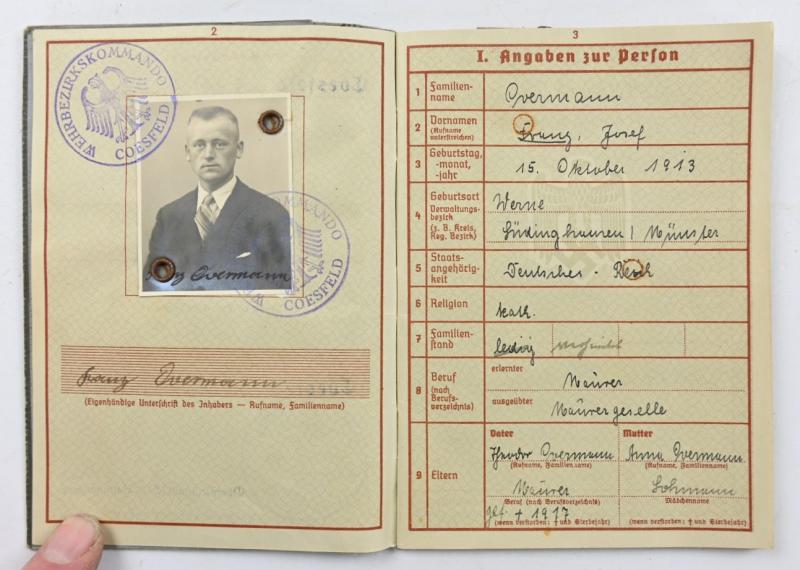 2
WEHRBEZIRKSKOMMANDO
COESFELD
WEHRBEZIRKSKOMMANDO
COESFELD
Franz Overmann
Franz Overmann
(Eigenhändige Unterschrift des Inhabers — Rufname, Familienname)
3
I. Angaben zur Person
1 Familien-
name
Overmann
2 Vornamen
(Rufname
unterstreichen)
Franz, Josef
3 Geburtstag,
-monat,
-jahr
15. Oktober 1913
4 Geburtsort
Verwaltungs-
bezirk
(z. B. Kreis,
Reg. Bezirk)
Werne
Lüdinghausen / Münster
5 Staats-
angehörig-
keit
Deutsches - Reich
6 Religion
kath.
7 Familien-
stand
ledig verheiratet
8 Beruf
(nach
Berufs-
verzeichnis)
erlernter
Maurer
ausgeübter
Maurergeselle
9 Eltern
Vater
Theodor Overmann
(Rufname, Familienname)
Maurer
Beruf (nach Berufsverzeichnis)
gef. † 1917
(wenn verstorben: † und Sterbejahr)
Mutter
Anna Overmann
(Rufname, Familienname)
Lohmann
Mädchenname
(wenn verstorben: † und Sterbejahr)